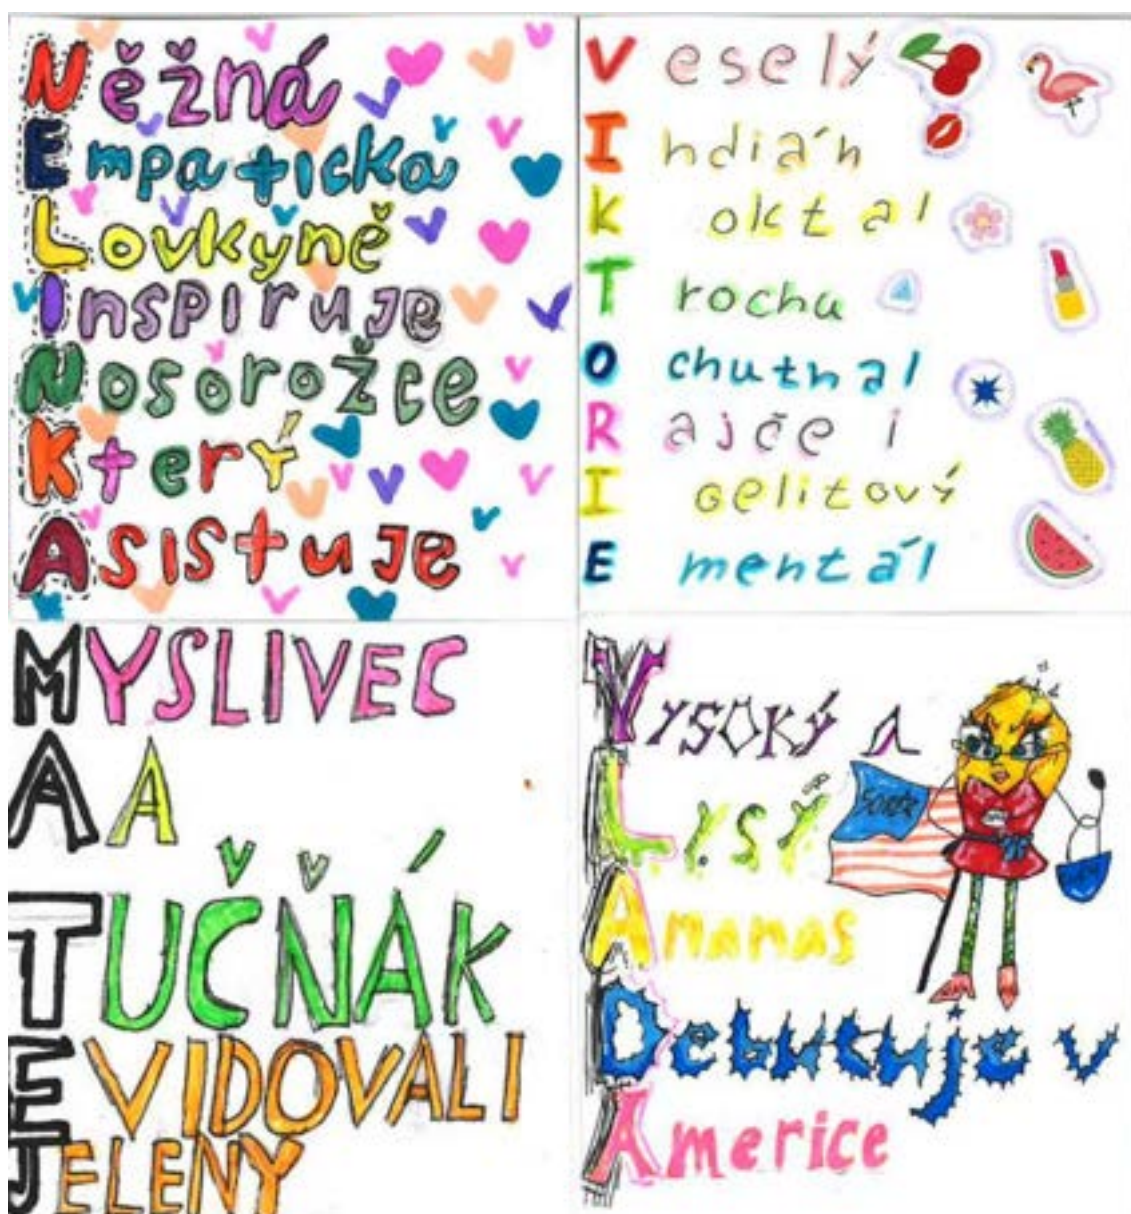 Něžná
Empaticka
Lovkyně
Inspiruje
Nosorožce
Který
Asistuje
Veselý
Indián
Koktal
Trochu
Ochutnal
Rajče i
I
Ementál
MYSLIVEC
A A
TUČŇÁK
EVIDOVALI
JELENY
Vysoký a
Lysý
Ananas
Debutuje v
Americe